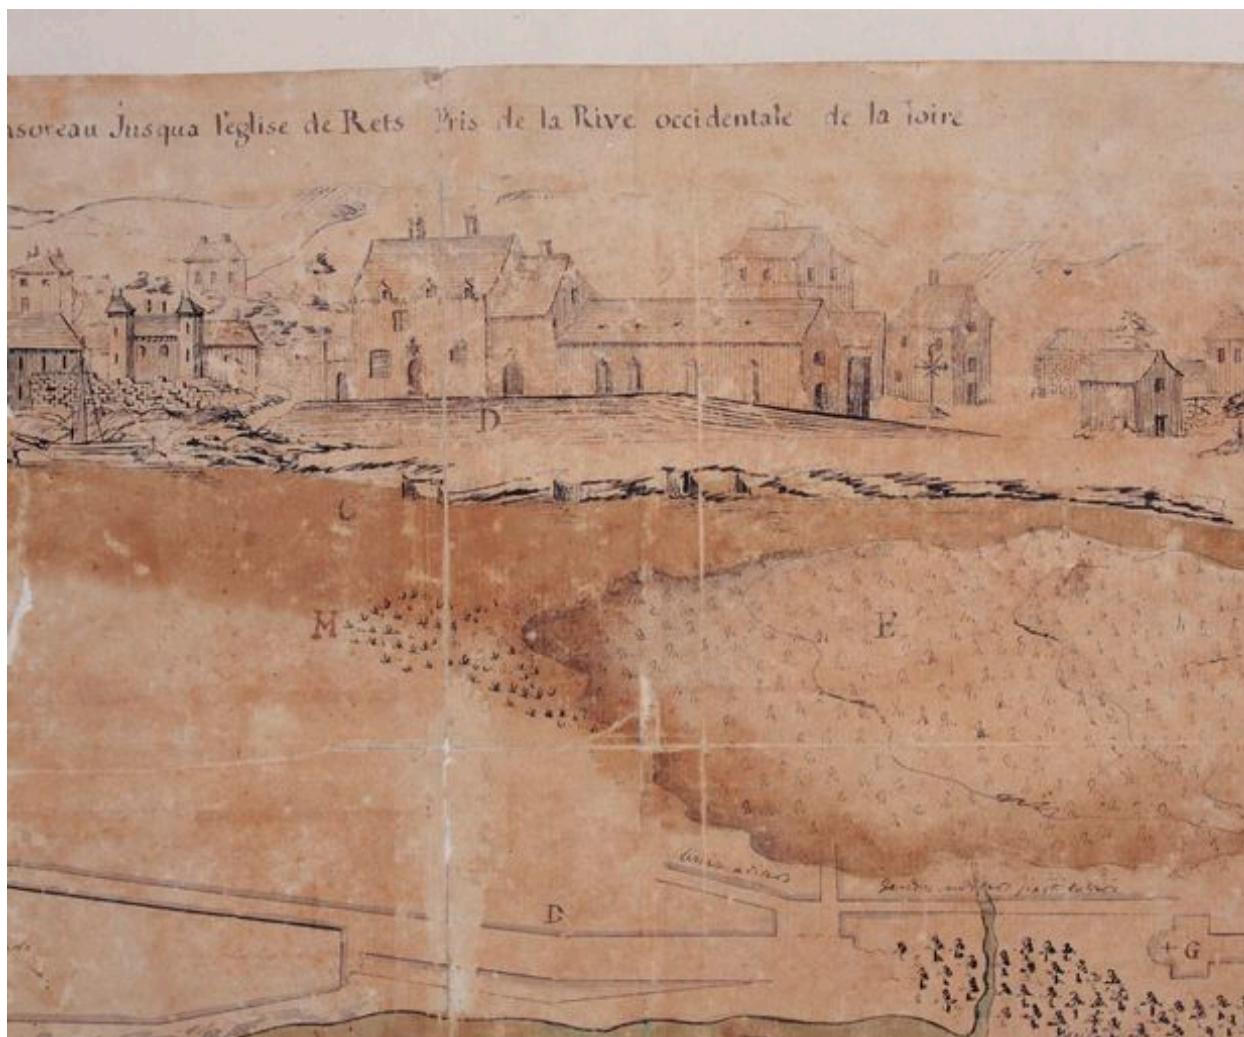 nsoreau Jusqua l'eglise de Rets Pris de la Rive occidentale de la loire
D
C
M
E
D
G